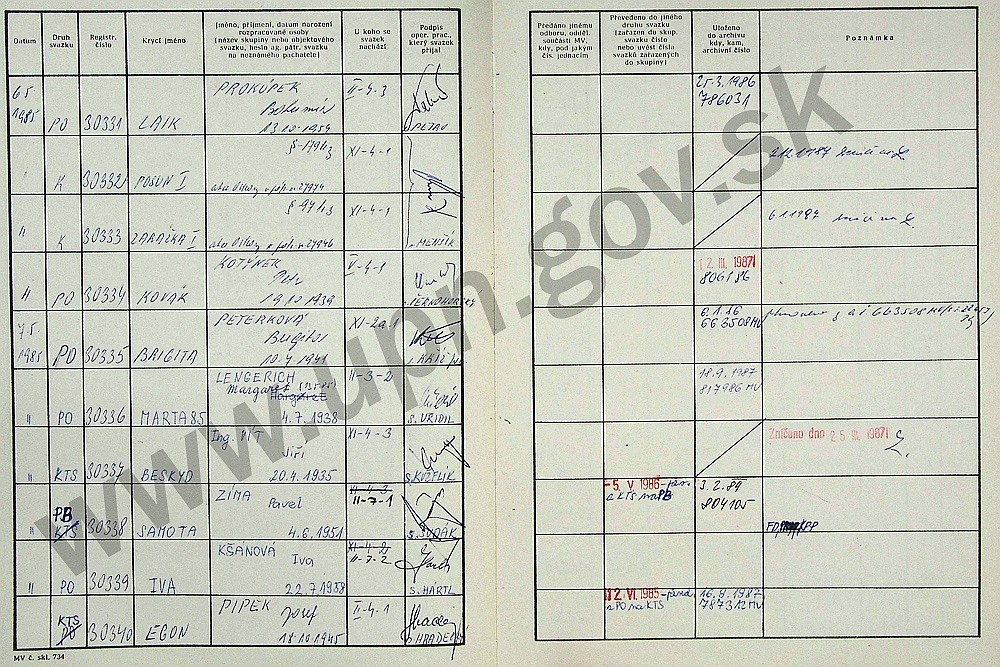 Datum
Druh svazku
Registr. číslo
Krycí jméno
Jméno, příjmení, datum narození
rozpracované osoby
(název skupiny nebo objektového
svazku, heslo ag. pátr. svazku
na neznámého pachatele)
U koho se
svazek
nachází
Podpis
oper. prac.,
který svazek
přijal
Předáno jinému
odboru, odděl.
součásti MV,
kdy, pod jakým
čís. jednacím
Převedeno do jiného
druhu svazku
(zařazen do skup.
svazku číslo
nebo uvést čísla
svazků zařazených
do skupiny)
Uloženo
do archivu
kdy, kam,
archivní číslo
Poznámka
6.5. 1985 PO 30331 LAIK
PROKŮPEK
Bohumír
13.10.1954
II-4-3
25.3.1986
786031
K 30332 POSUN I
XI-4-1
2.12.1987
II K 30333 ZARÁŽKA I
XI-4-1
s. MENŠÍK
6.1.1987
II PO 30334 KOVÁK
KOTÝNEK
Petr
19.10.1939
V-4-1
12. III. 1987
806186
7.5. 1985 PO 30335 BRIGITA
PETERKOVÁ
Brigita
10.4.1941
XI-2a-1
663508 MV
II PO 30336 MARTA 85
LENGERICH
Margaret
4.7.1938
II-3-2
s. VŘIDIL
18.9.1987
817986 MV
II KTS 30337 BESKYD
Ing. VÍT
Jiří
20.4.1935
XI-4-3
s. KOZELÍK
Zničeno dne 25. III. 1987
II PB KTS 30338 SAMOTA
ZÍMA
Pavel
4.6.1951
XI-4-3
II-7-1
s. SUDÁK
-5. V. 1986
z KTS na PB
3.2.89
804105
II PO 30339 IVA
KŠANOVÁ
Iva
22.7.1938
XI-4-2
II-7-2
s. HÁRTL
KTS PO 30340 EGON
PIPEK
Josef
18.10.1945
II-4-1
s. HRADECKÝ
12. VI. 1985
z PO na KTS
16.9.1987
787312 MV
MV č. skl. 734
www.upn.gov.sk